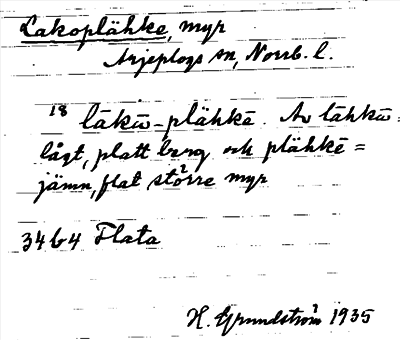 Lakoplähke, myr
Arjeplogs sn, Norrb. l.
18 lākū-plähkē. Av lāhkū =
lågt, platt berg och plähkē =
jämn, flat större myr
3464 Flata
H. Grundström 1935